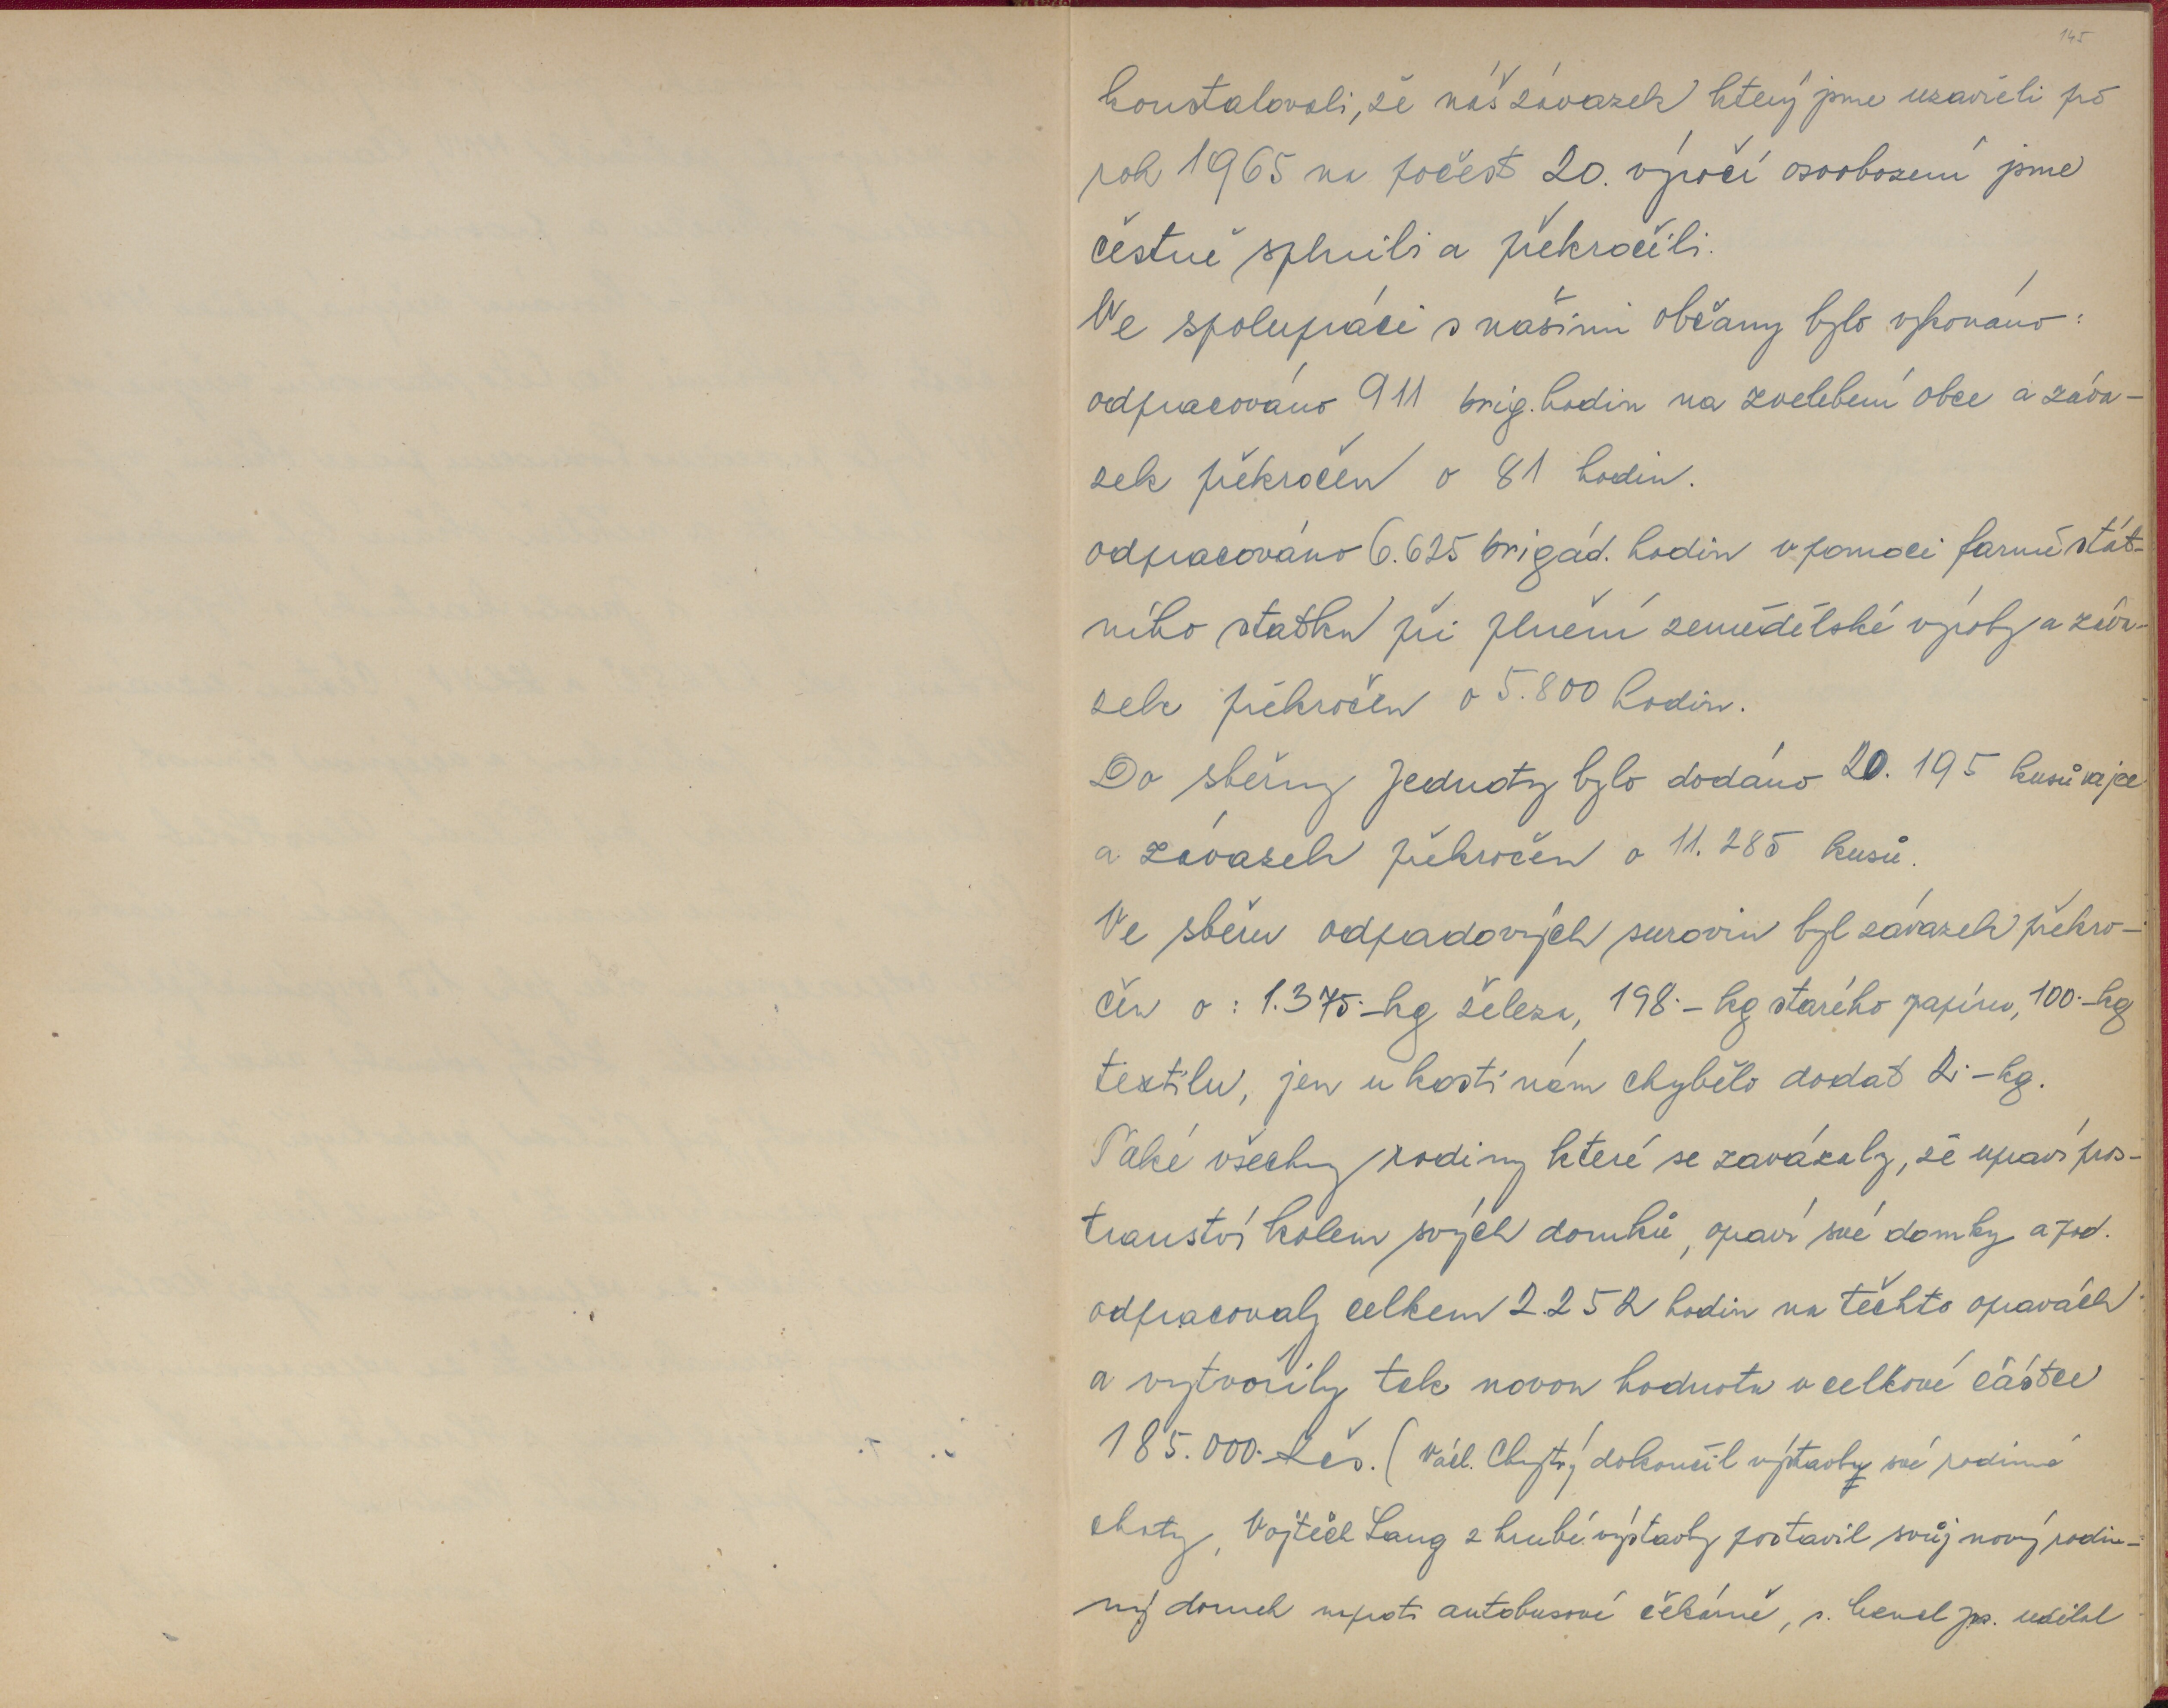 145
konstatovali, že náš závazek který jsme uzavřeli pro
rok 1965 na počest 20. výročí osvobození jsme
čestně splnili a překročili.
Ve spolupráci s našimi občany bylo vykonáno:
odpracováno 911 brig. hodin na zvelebení obce a záva-
zek překročen o 81 hodin.
odpracováno 6.625 brigád. hodin v pomoci farmě stát-
ního statku při plnění zemědělské výroby a záva-
zek překročen o 5.800 hodin.
Do sběrny Jednoty bylo dodáno 20.195 kusů vajec
a závazek překročen o 11.285 kusů.
Ve sběru odpadových surovin byl závazek překro-
čen o: 1.375.-kg železa, 198.-kg starého papíru, 100.-kg
textilu, jen u kostí nám chybělo dodat 2.-kg.
Také všechny rodiny které se zavázaly, že upraví pros-
transtvi kolem svých domků, opraví své domky a pod.
odpracovaly celkem 2.252 hodin na těchto opravách
a vytvořily tak novou hodnotu v celkové částce
185.000.-Kčs. (Václ. Chytrý dokončil výstavby své rodinné
chaty, Vojtěch Lang z hrubé výstavby postavil svůj nový rodin-
ný domek naproti autobusové čekárně, s. udělal